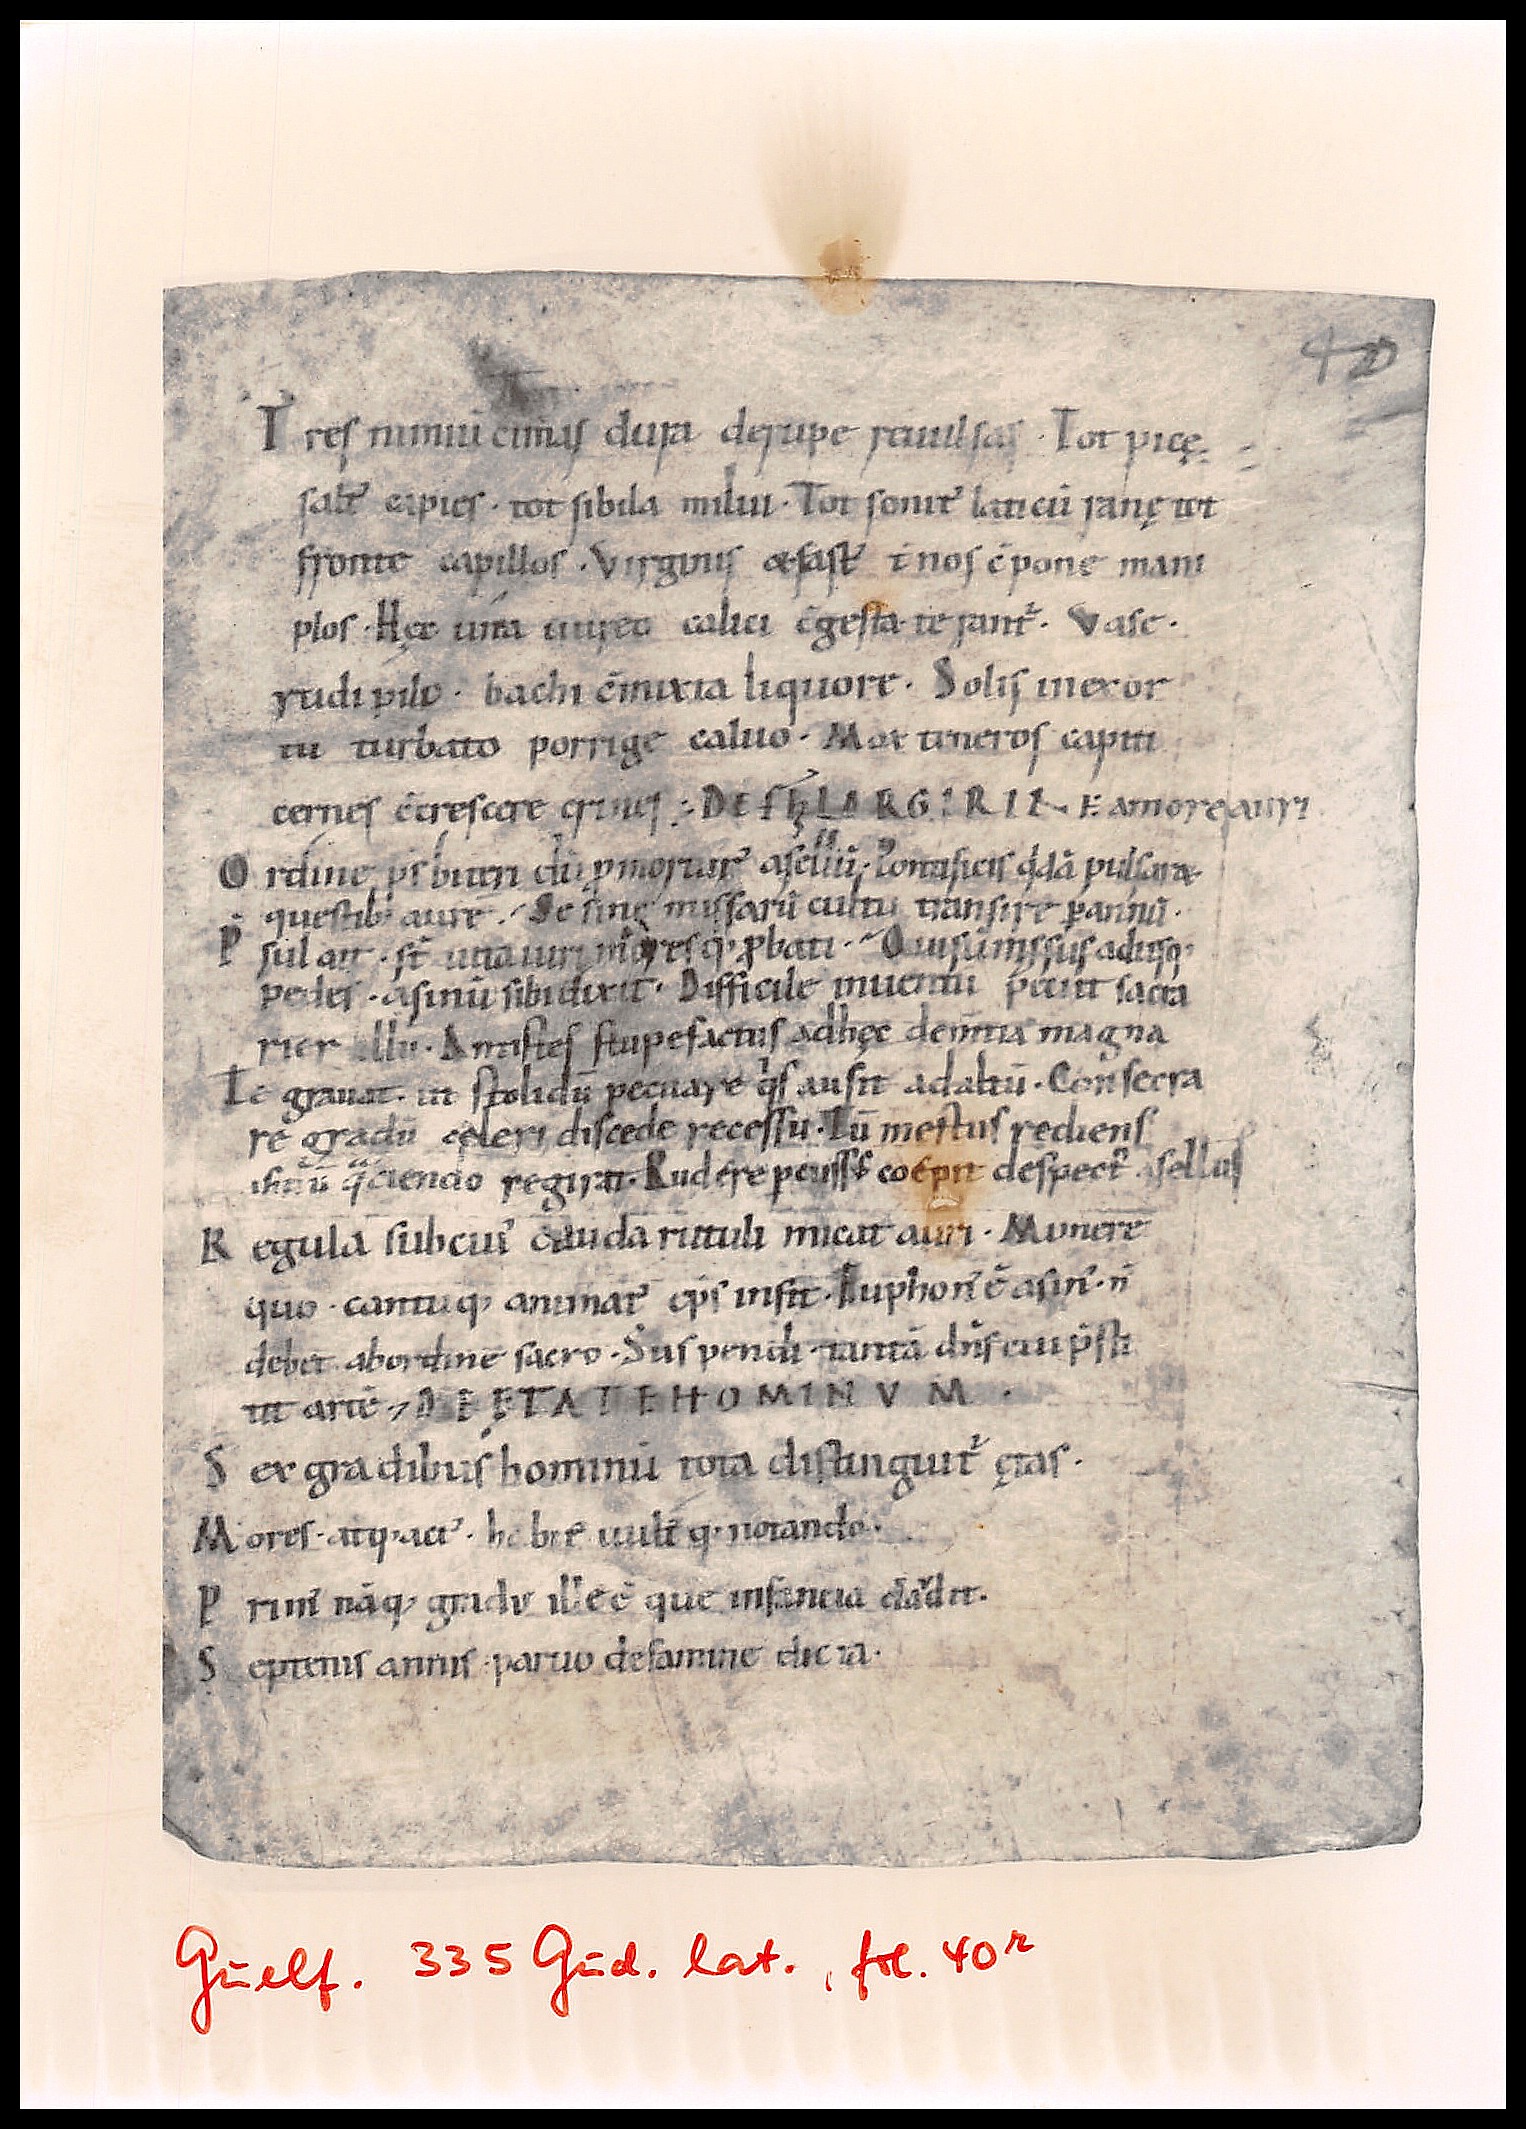 40
Tres nimiū cimas dura derupe reuulsas · Tot picę
saltꝰ capies · tot sibila milui · Tot sonitꝰ laticū ranę tot
fronte capillos · Virginis &fastꝰ ī nos c̄pone mani
plos · Hęc uitreo calici c̄gesta terantꝰ · Vase ·
rudi pilo · bachi c̄mixta liquore · Solis inexor
tu turbato porrige caluo · Mox teneros capiti
cernes c̄crescere crines : DE FILARGIRII E amore auri
Ordine p̄sbiteri dū p̄moritꝰ asellū · Pontificis q̄dā pulsarat
questibꝫ aurē · Se sine missarū cultu transire p annū ·
P̄sul ait · st̄ uita uiri moresqꝫ p̄bati · Quisū missus adusqꝫ
pedes · asinū sibi dixit · Difficile inuentu petiit sacra
rier illū · Antistes stupefactus adhęc dem̄tia magna
Te grauat · ut stolidū pecuare q̄s ausit ad altū · Consecra
re gradū celeri discede recessu · Tū mestus rediens
regirat · Rudere coepit despectꝰ asellus
Regula subcuiꝰ cauda rutuli micat auri · Munere
quo · cantuqꝫ animatꝰ ep̄s insit · Euphonꝰ ē asinꝰ · n̄
debet abordine sacro · Suspendi · tantā dn̄s cui p̄sti
tit artē DE ĘTATE HOMINVM ·
Sex gradibus hominū tota distinguitꝰ ętas ·
Mores · atqꝫ actꝰ · notando ·
Primꝰ nāqꝫ gradus ille ē que infancia claudit ·
Septenis annis · paruo desamine dicta ·
Guelf. 335 Gud. lat., fol. 40r